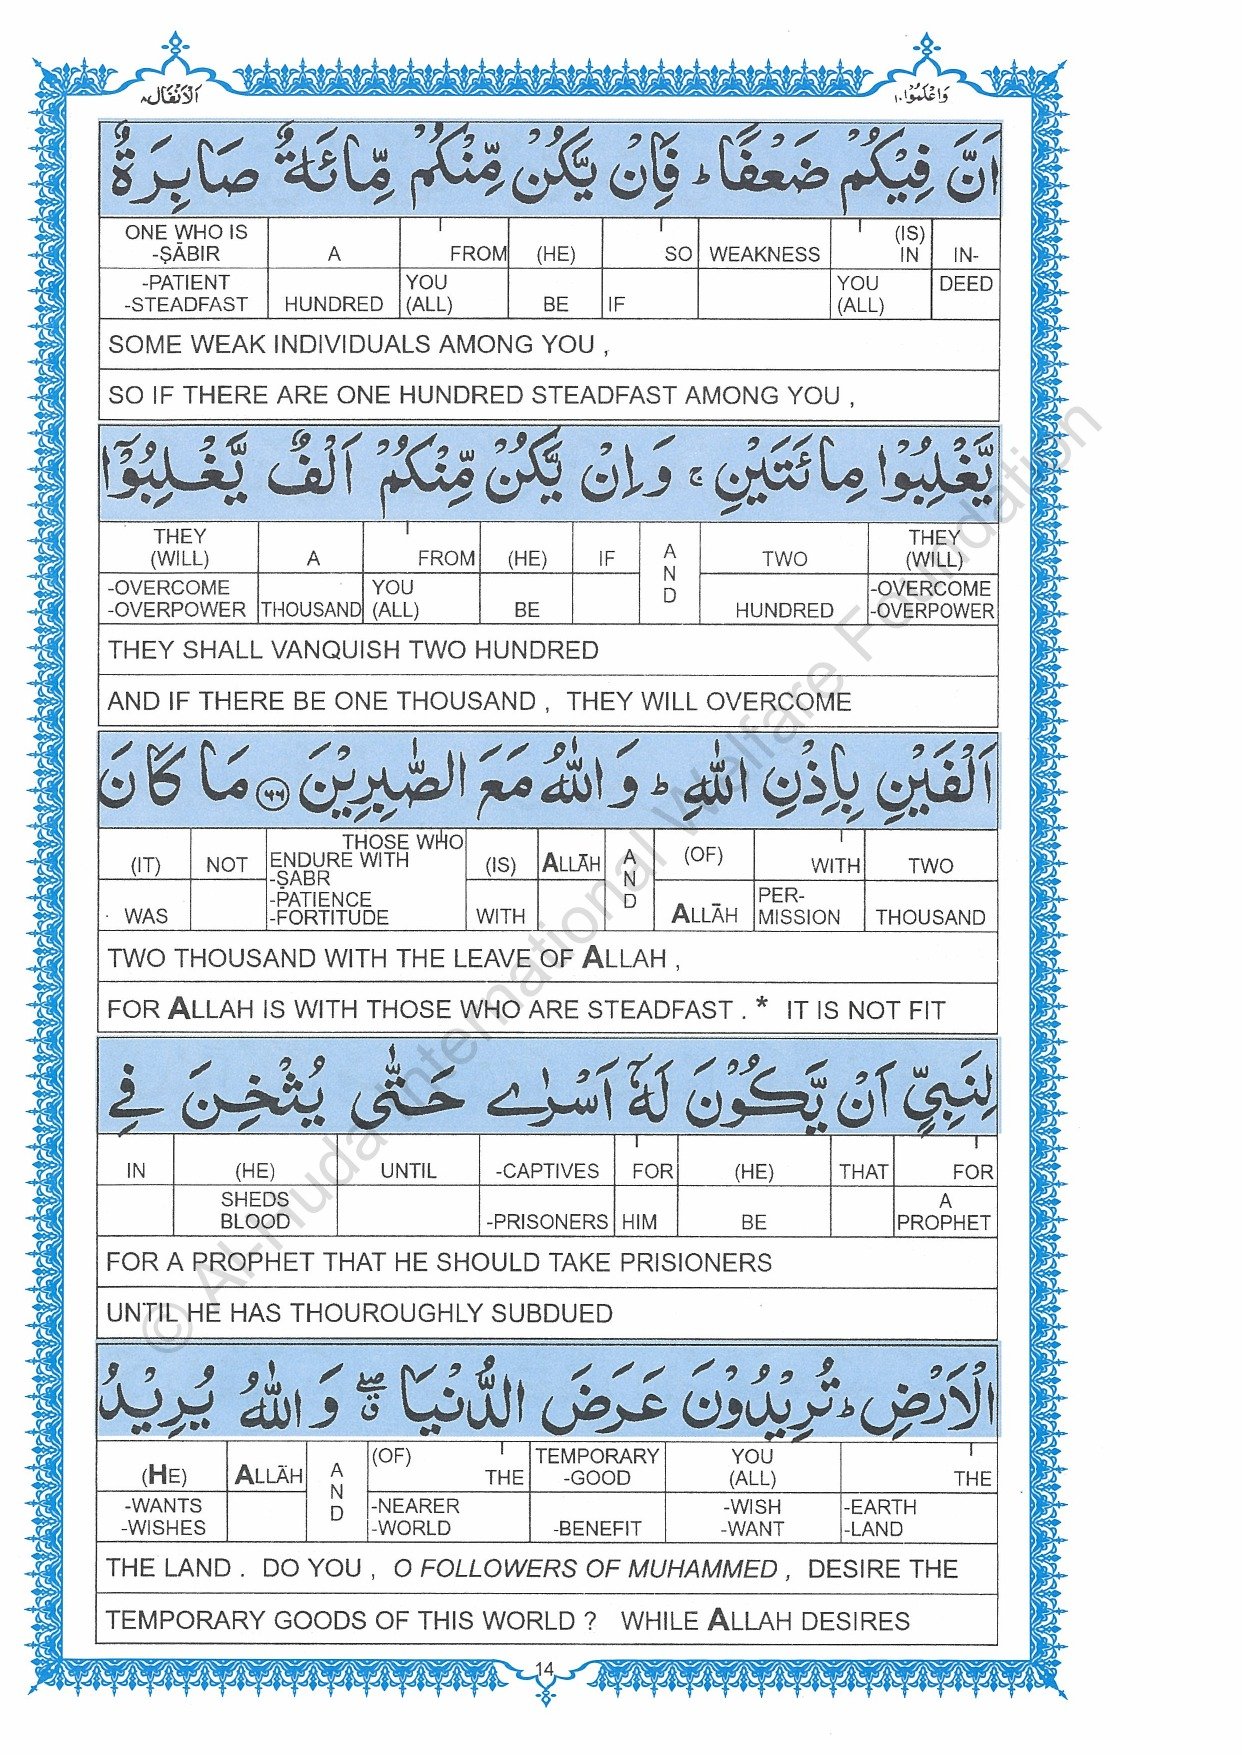 وَاعْلَمُوْا ١٠
اَلْاَنْفَال ٨
اَنَّ فِيْكُمْ ضَعْفًا ؕ فَاِنْ يَّكُنْ مِّنْكُمْ مِّائَةٌ صَابِرَةٌ
ONE WHO IS -ṢĀBIR A FROM (HE) SO WEAKNESS (IS) IN IN-
-PATIENT -STEADFAST HUNDRED YOU (ALL) BE IF YOU (ALL) DEED
SOME WEAK INDIVIDUALS AMONG YOU ,
SO IF THERE ARE ONE HUNDRED STEADFAST AMONG YOU ,
يَّغْلِبُوْا مِائَتَيْنِ ۚ وَ اِنْ يَّكُنْ مِّنْكُمْ اَلْفٌ يَّغْلِبُوْٓا
THEY (WILL) A FROM (HE) IF AND TWO THEY (WILL)
-OVERCOME -OVERPOWER THOUSAND YOU (ALL) BE HUNDRED -OVERCOME -OVERPOWER
THEY SHALL VANQUISH TWO HUNDRED
AND IF THERE BE ONE THOUSAND , THEY WILL OVERCOME
اَلْفَيْنِ بِاِذْنِ اللّٰهِ ؕ وَ اللّٰهُ مَعَ الصّٰبِرِيْنَ ۝٦٦ مَا كَانَ
(IT) NOT THOSE WHO ENDURE WITH -ṢABR -PATIENCE -FORTITUDE (IS) ALLĀH AND (OF) WITH TWO
WAS WITH ALLĀH PER- MISSION THOUSAND
TWO THOUSAND WITH THE LEAVE OF ALLAH ,
FOR ALLAH IS WITH THOSE WHO ARE STEADFAST . * IT IS NOT FIT
لِنَبِيٍّ اَنْ يَّكُوْنَ لَهٗٓ اَسْرٰے حَتّٰى يُثْخِنَ فِے
IN (HE) UNTIL -CAPTIVES FOR (HE) THAT FOR
SHEDS BLOOD -PRISONERS HIM BE A PROPHET
FOR A PROPHET THAT HE SHOULD TAKE PRISIONERS
UNTIL HE HAS THOUROUGHLY SUBDUED
الْاَرْضِ ؕ تُرِيْدُوْنَ عَرَضَ الدُّنْيَا ۖق وَ اللّٰهُ يُرِيْدُ
(HE) ALLĀH AND (OF) THE TEMPORARY -GOOD YOU (ALL) THE
-WANTS -WISHES -NEARER -WORLD -BENEFIT -WISH -WANT -EARTH -LAND
THE LAND . DO YOU , O FOLLOWERS OF MUHAMMED , DESIRE THE
TEMPORARY GOODS OF THIS WORLD ? WHILE ALLAH DESIRES
14
© Al-Huda International Welfare Foundation